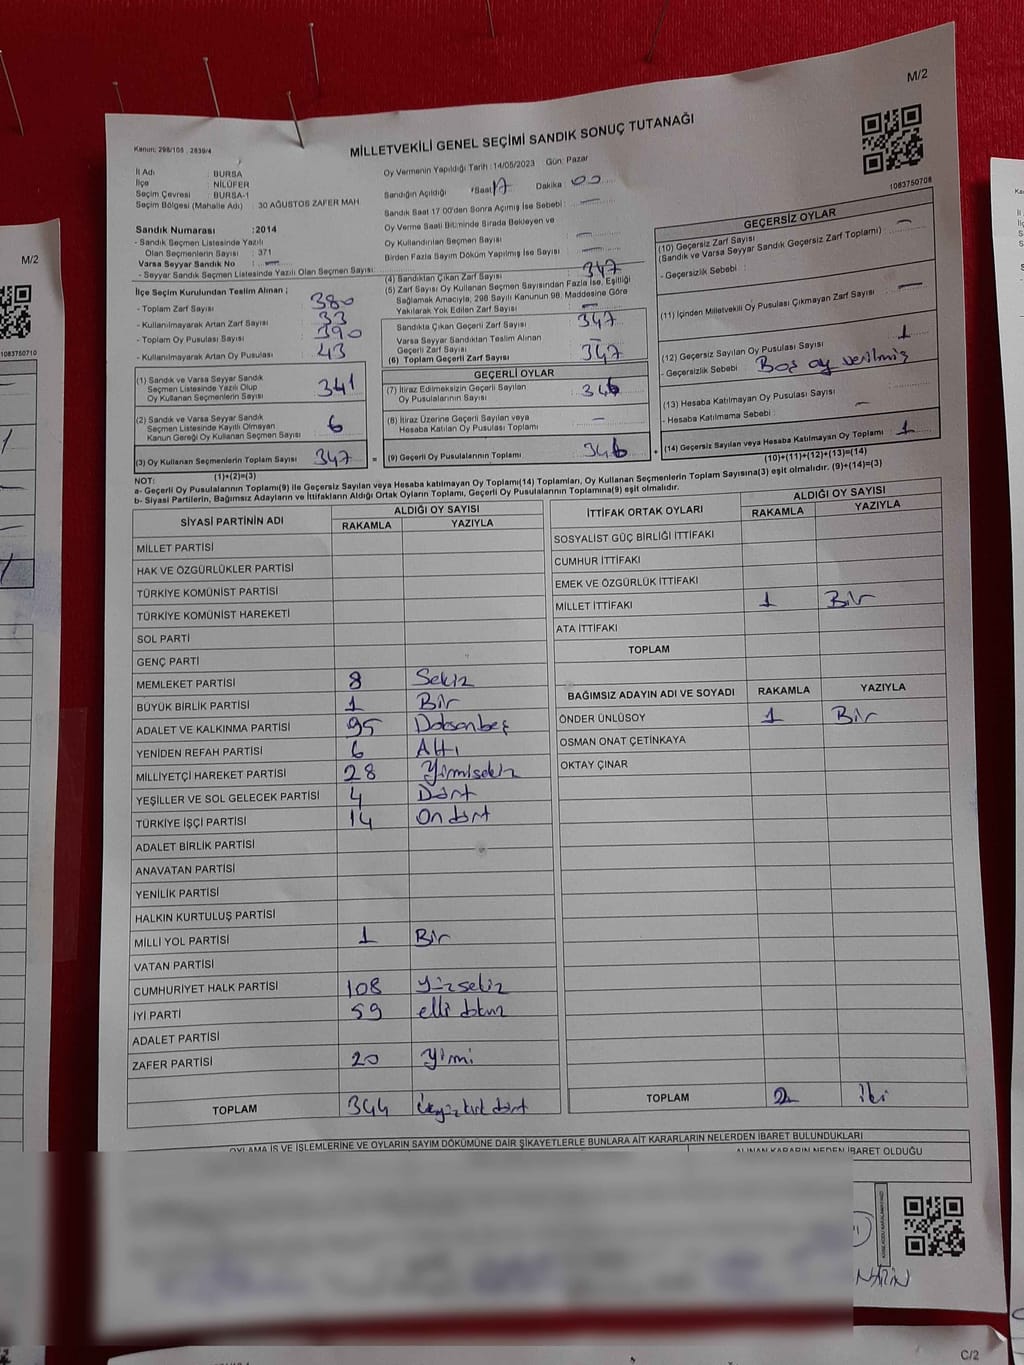 M/2
Kanun: 298/105 , 2839/4
MİLLETVEKİLİ GENEL SEÇİMİ SANDIK SONUÇ TUTANAĞI
1083750708
İl Adı : BURSA
İlçe : NİLÜFER
Seçim Çevresi : BURSA-1
Seçim Bölgesi (Mahalle Adı) : 30 AĞUSTOS ZAFER MAH.
Sandık Numarası :2014
- Sandık Seçmen Listesinde Yazılı
Olan Seçmenlerin Sayısı : 371
Varsa Seyyar Sandık No : —
- Seyyar Sandık Seçmen Listesinde Yazılı Olan Seçmen Sayısı:
Oy Vermenin Yapıldığı Tarih :14/05/2023 Gün: Pazar
Sandığın Açıldığı :Saat 17 Dakika : 00
Sandık Saat 17:00'den Sonra Açımış İse Sebebi : —
Oy Verme Saati Bitiminde Sırada Bekleyen ve
Oy Kullandırılan Seçmen Sayısı : —
Birden Fazla Sayım Döküm Yapılmış İse Sayısı : —
İlçe Seçim Kurulundan Teslim Alınan ;
- Toplam Zarf Sayısı : 380
- Kullanılmayarak Artan Zarf Sayısı : 33
- Toplam Oy Pusulası Sayısı : 390
- Kullanılmayarak Artan Oy Pusulası : 43
(1) Sandık ve Varsa Seyyar Sandık
Seçmen Listesinde Yazılı Olup
Oy Kullanan Seçmenlerin Sayısı : 341
(2) Sandık ve Varsa Seyyar Sandık
Seçmen Listesinde Kayıtlı Olmayan
Kanun Gereği Oy Kullanan Seçmen Sayısı : 6
(3) Oy Kullanan Seçmenlerin Toplam Sayısı : 347
(1)+(2)=(3)
(4) Sandıktan Çıkan Zarf Sayısı : 347
(5) Zarf Sayısı Oy Kullanan Seçmen Sayısından Fazla İse, Eşitliği
Sağlamak Amacıyla, 298 Sayılı Kanunun 98. Maddesine Göre
Yakılarak Yok Edilen Zarf Sayısı : —
Sandıkta Çıkan Geçerli Zarf Sayısı : 347
Varsa Seyyar Sandıktan Teslim Alınan
Geçerli Zarf Sayısı : —
(6) Toplam Geçerli Zarf Sayısı : 347
GEÇERLİ OYLAR
(7) İtiraz Edilmeksizin Geçerli Sayılan
Oy Pusulalarının Sayısı : 346
(8) İtiraz Üzerine Geçerli Sayılan veya
Hesaba Katılan Oy Pusulası Toplamı : —
= (9) Geçerli Oy Pusulalarının Toplamı : 346
GEÇERSİZ OYLAR
(10) Geçersiz Zarf Sayısı : —
(Sandık ve Varsa Seyyar Sandık Geçersiz Zarf Toplamı)
- Geçersizlik Sebebi :
(11) İçinden Milletvekili Oy Pusulası Çıkmayan Zarf Sayısı : —
(12) Geçersiz Sayılan Oy Pusulası Sayısı : 1
- Geçersizlik Sebebi : Boş oy verilmiş
(13) Hesaba Katılmayan Oy Pusulası Sayısı : —
- Hesaba Katılmama Sebebi :
(14) Geçersiz Sayılan veya Hesaba Katılmayan Oy Toplamı : 1
(10)+(11)+(12)+(13)=(14)
NOT:
a- Geçerli Oy Pusulalarının Toplamı(9) ile Geçersiz Sayılan veya Hesaba katılmayan Oy Toplamı(14) Toplamları, Oy Kullanan Seçmenlerin Toplam Sayısına(3) eşit olmalıdır. (9)+(14)=(3)
b- Siyasi Partilerin, Bağımsız Adayların ve İttifakların Aldığı Ortak Oyların Toplamı, Geçerli Oy Pusulalarının Toplamına(9) eşit olmalıdır.
SİYASİ PARTİNİN ADI ALDIĞI OY SAYISI
RAKAMLA YAZIYLA
MİLLET PARTİSİ
HAK VE ÖZGÜRLÜKLER PARTİSİ
TÜRKİYE KOMÜNİST PARTİSİ
TÜRKİYE KOMÜNİST HAREKETİ
SOL PARTİ
GENÇ PARTİ
MEMLEKET PARTİSİ 8 Sekiz
BÜYÜK BİRLİK PARTİSİ 1 Bir
ADALET VE KALKINMA PARTİSİ 95 Doksanbeş
YENİDEN REFAH PARTİSİ 6 Altı
MİLLİYETÇİ HAREKET PARTİSİ 28 Yirmisekiz
YEŞİLLER VE SOL GELECEK PARTİSİ 4 Dört
TÜRKİYE İŞÇİ PARTİSİ 14 On dört
ADALET BİRLİK PARTİSİ
ANAVATAN PARTİSİ
YENİLİK PARTİSİ
HALKIN KURTULUŞ PARTİSİ
MİLLİ YOL PARTİSİ 1 Bir
VATAN PARTİSİ
CUMHURİYET HALK PARTİSİ 108 Yüzsekiz
İYİ PARTİ 59 elli dokuz
ADALET PARTİSİ
ZAFER PARTİSİ 20 Yirmi
TOPLAM 344 Üçyüz kırk dört
İTTİFAK ORTAK OYLARI ALDIĞI OY SAYISI
RAKAMLA YAZIYLA
SOSYALİST GÜÇ BİRLİĞİ İTTİFAKI
CUMHUR İTTİFAKI
EMEK VE ÖZGÜRLÜK İTTİFAKI
MİLLET İTTİFAKI 1 Bir
ATA İTTİFAKI
TOPLAM
BAĞIMSIZ ADAYIN ADI VE SOYADI RAKAMLA YAZIYLA
ÖNDER ÜNLÜSOY 1 Bir
OSMAN ONAT ÇETİNKAYA
OKTAY ÇINAR
TOPLAM 2 İki
OYLAMA İŞ VE İŞLEMLERİNE VE OYLARIN SAYIM DÖKÜMÜNE DAİR ŞİKAYETLERLE BUNLARA AİT KARARLARIN NELERDEN İBARET BULUNDUKLARI
ALINAN KARARIN NEDEN İBARET OLDUĞU
M/2
1083750710
C/2